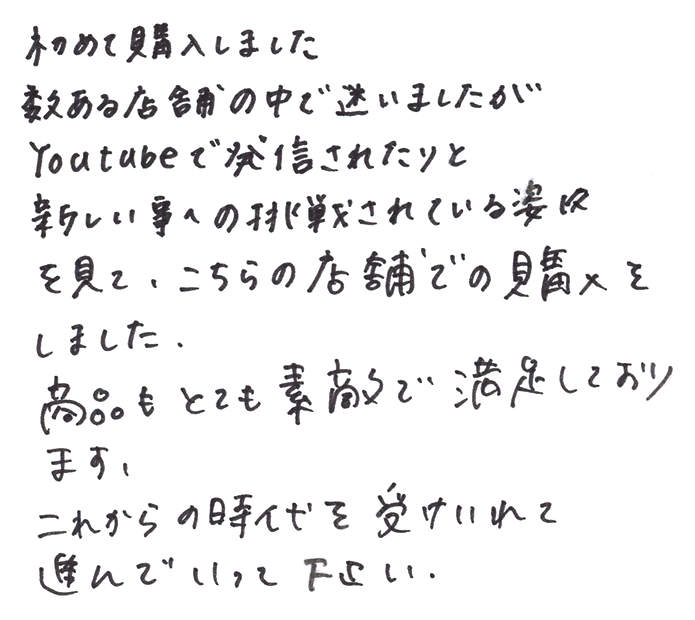 初めて購入しました
数ある店舗の中で迷いましたが
Youtubeで発信されたりと
新しい事への挑戦されている姿
を見て、こちらの店舗での購入を
しました.
商品もとても素敵で満足しており
ます、
これからの時代を受けいれて
進んでいって下さい.